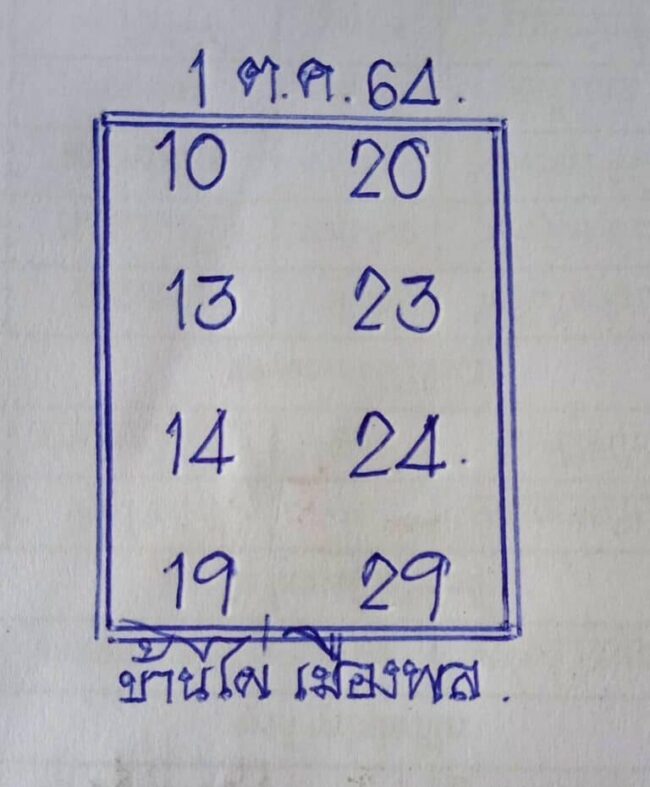 1 ต.ค. 64.
10 20
13 23
14 24.
19 29
บ้านไผ่ เมืองพล.